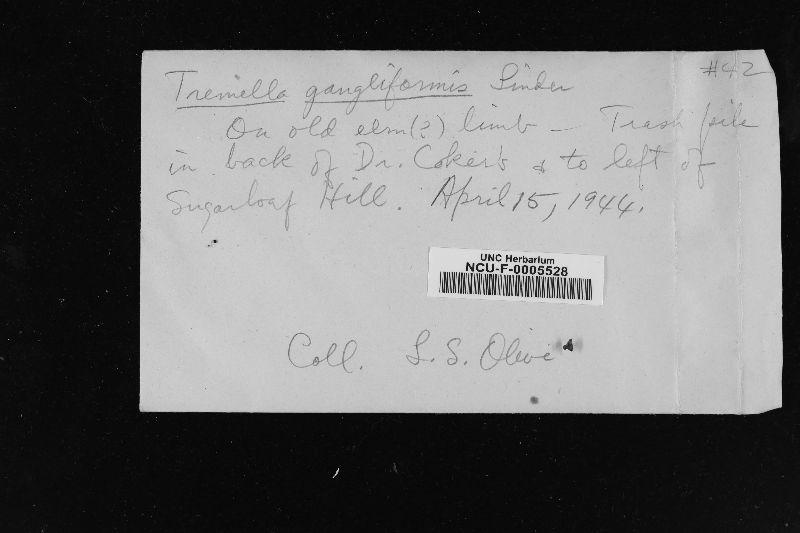 #42
Tremella gangliformis Linder
On old elm(?) limb – Trash pile
in back of Dr. Coker's & to left of
Sugarloaf Hill. April 15, 1944.
UNC Herbarium
NCU-F-0005528
Coll. L. S. Olive